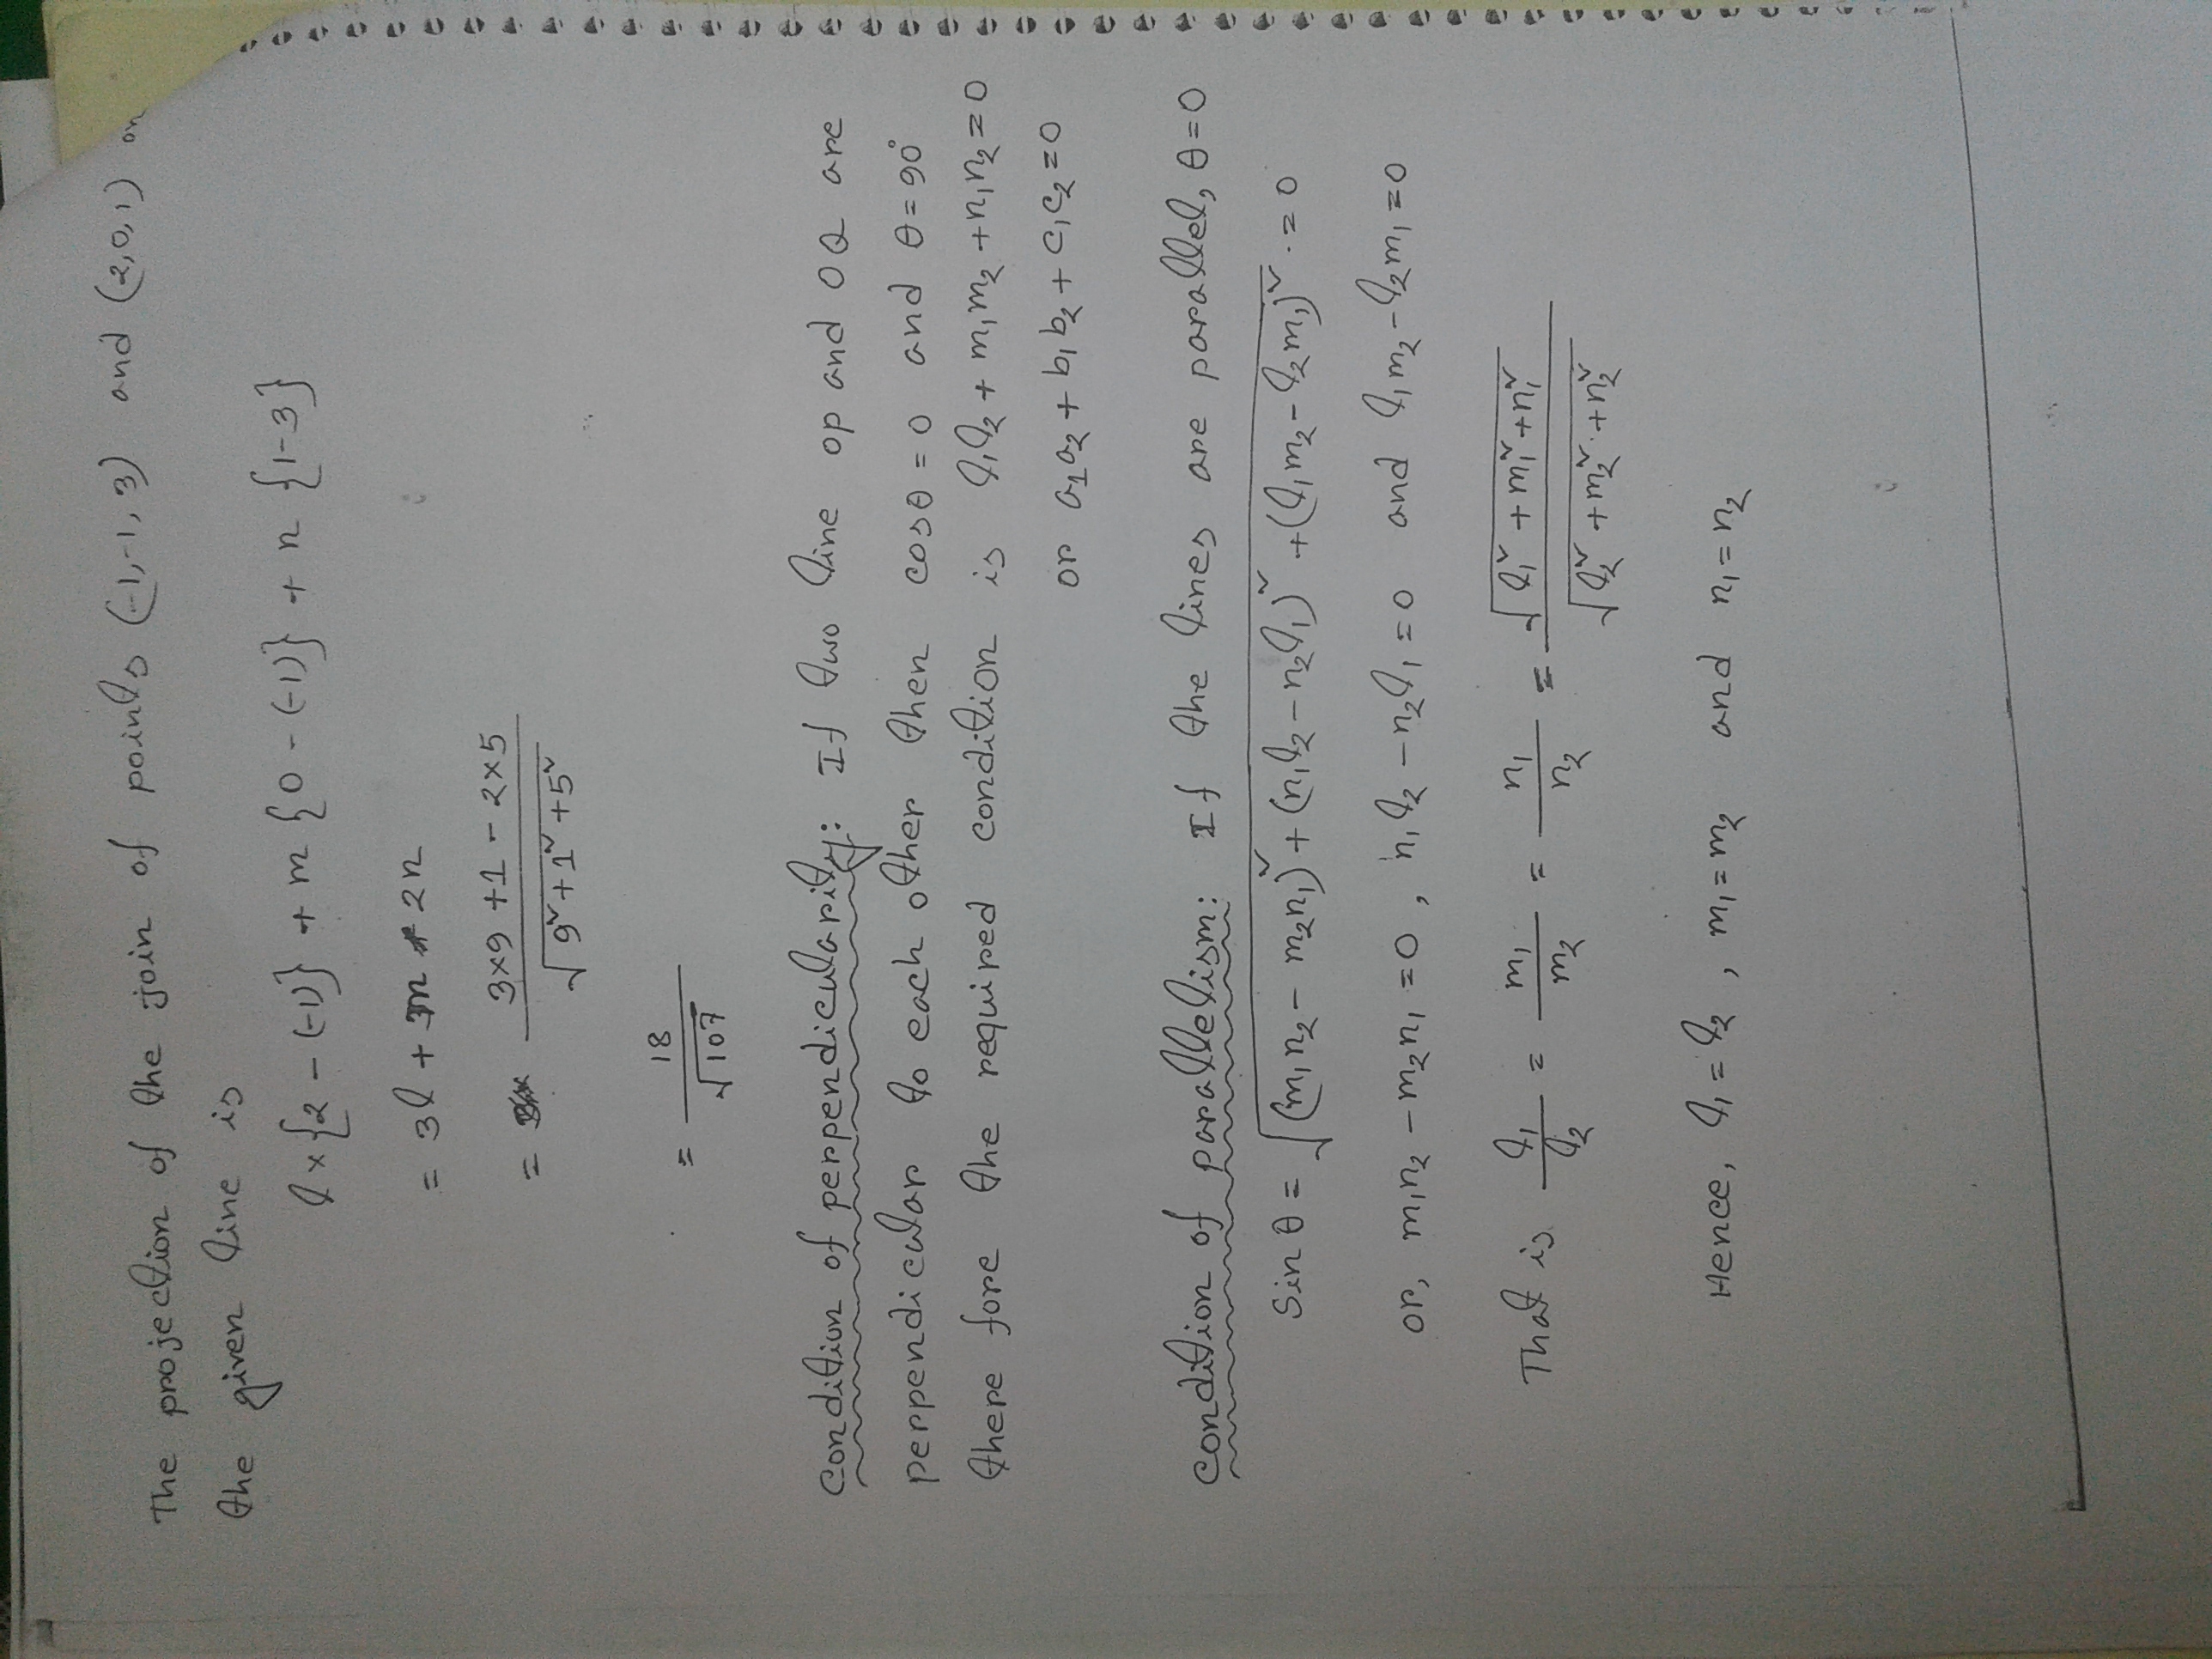 The projection of the join of points (-1,-1, 3) and (2,0,1) on
the given line is
l×{2 - (-1)} + m {0 - (-1)} + n {1-3}
= 3l + m - 2n
= (3×9 +1 - 2×5) / √(9² + 1² + 5²)
= 18 / √107
Condition of perpendicularity: If two line op and OQ are
perpendicular to each other then cosθ = 0 and θ = 90°
there fore the required condition is l₁l₂ + m₁m₂ + n₁n₂ = 0
or a₁a₂ + b₁b₂ + c₁c₂ = 0
Condition of parallelism: If the lines are parallel, θ = 0
Sin θ = √((m₁n₂ - m₂n₁)² + (n₁l₂ - n₂l₁)² + (l₁m₂ - l₂m₁)²) = 0
or, m₁n₂ - m₂n₁ = 0 , n₁l₂ - n₂l₁ = 0 and l₁m₂ - l₂m₁ = 0
That is l₁/l₂ = m₁/m₂ = n₁/n₂ = √(l₁² + m₁² + n₁²) / √(l₂² + m₂² + n₂²)
Hence, l₁ = l₂ , m₁ = m₂ and n₁ = n₂